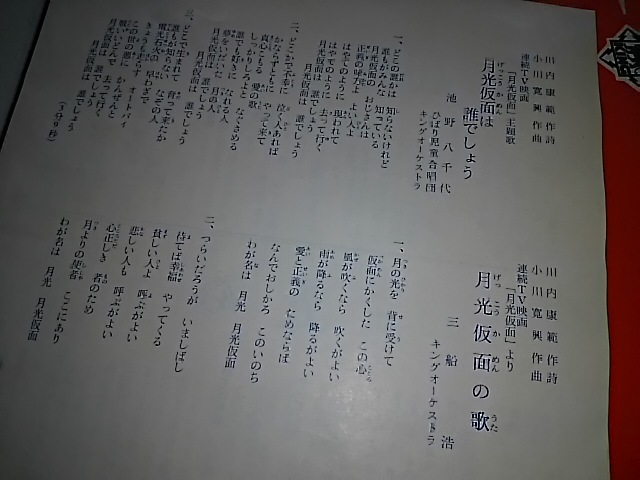 川内康範作詩
小川寛興作曲
連続TV映画
「月光仮面」主題歌
月光仮面は
誰でしょう
池野八千代
ひばり児童合唱団
キングオーケストラ
一、どこの誰かは 知らないけれど
誰もがみんな 知っている
月光仮面の おじさんは
正義の味方よ よい人よ
はやてのように 現われて
はやてのように 去って行く
月光仮面は 誰でしょう
月光仮面は 誰でしょう
二、どこかで不幸に 泣く人あれば
かならずともに やって来て
真心こもる 愛の歌
しっかりしろよと なぐさめる
誰でも好きに なれる人
夢をいだいた 月の人
月光仮面は 誰でしょう
月光仮面は 誰でしょう
三、どこで生まれて 育って来たか
誰もが知らない なぞの人
電光石火の 早わざで
きょうも走らす オートバイ
この世の悪に かんぜんと
戦いいどんで 去って行く
月光仮面は 誰でしょう
月光仮面は 誰でしょう
川内康範作詩
小川寛興作曲
連続TV映画
「月光仮面」より
月光仮面の歌
三船浩
キングオーケストラ
一、月の光を 背に受けて
仮面にかくした この心
風が吹くなら 吹くがよい
雨が降るなら 降るがよい
愛と正義の ためならば
なんでおしかろ このいのち
わが名は 月光 月光仮面
二、つらいだろうが いましばし
待てば幸福 やってくる
貧しい人よ 呼ぶがよい
悲しい人も 呼ぶがよい
心正しき 者のため
月よりの使者 ここにあり
わが名は 月光 月光仮面